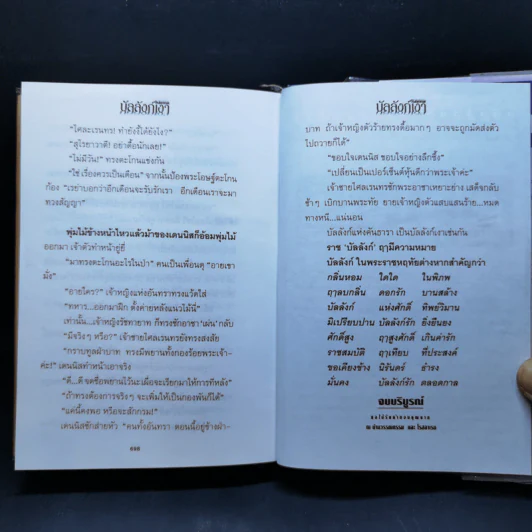 บัลลังก์เงา
"ไศละเรนทร! ทำยังงี้ได้ยังไง?"
"สุไรยาวาตี! อย่าดื้อนักเลย!"
"ไม่มีวัน!" ทรงตะโกนแข่งกัน
"ใช่ เรื่องควรเป็นเดือน" จากนั้นป้องพระโอษฐ์ตะโกน
ก้อง "เรย่าบอกว่าอีกเดือนจะรับรักเรา อีกเดือนเราจะมา
ทวงสัญญา"
พุ่มไม้ข้างหน้าไหวแล้วม้าของเดนนิสก็อ้อมพุ่มไม้
ออกมา เจ้าตัวทำหน้ายุ่งยี่
"มาทรงตะโกนอะไรในป่า" คนเป็นเพื่อนดุ "อายเขา
มั่ง"
"อายใคร?" เจ้าหญิงแห่งอันทราทรงแว้ดใส่
"ทหาร...ออกมาฝึก ตั้งค่ายหลังแนวไม้นี่"
เท่านั้น...เจ้าหญิงรัชทายาท ก็ทรงชักอาชา 'เผ่น' กลับ
"มีจริงๆ หรือ?" เจ้าชายไศลเรนทรยังทรงสงสัย
"กราบทูลฝ่าบาท ทรงมีพยานทั้งกองร้อยพระเจ้า-
ค่ะ!" เดนนิสทำหน้าเอาจริง
"ดี...ดี จดชื่อพยานไว้นะเผื่อจะเรียกมาให้การทีหลัง"
"ถ้าทรงต้องการจริงๆ จะเพิ่มให้เป็นกองพันก็ได้"
"แค่นี้คงพอ หรือจะสักกรม!"
เดนนิสชักส่ายหัว "คนทั้งอันทรา ตอนนี้อยู่ข้างฝ่า-
บัลลังก์เงา
บาท ถ้าเจ้าหญิงตัวร้ายทรงดื้อมากๆ อาจจะถูกมัดส่งตัว
ไปถวายก็ได้"
"ขอบใจเดนนิส ขอบใจอย่างลึกซึ้ง"
"เปลี่ยนเป็นเปอร์เซ็นต์หุ้นดีกว่าพระเจ้าค่ะ"
เจ้าชายไศลเรนทรชักพระอาชาเหยาะย่าง เสด็จกลับ
ช้าๆ เบิกบานพระทัย ยายเจ้าหญิงตัวแสบแสนร้าย...หมด
ทางหนี...แน่นอน
บัลลังก์แห่งคันธารา เป็นบัลลังก์เงาเช่นกัน
ราช 'บัลลังก์' ฤๅมีความหมาย
บัลลังก์ ในพระราชหฤทัยต่างหากสำคัญกว่า
กลิ่นหอม ใดใด ในพิภพ
ฤๅลบกลิ่น ดอกรัก บานสล้าง
บัลลังก์ แห่งศักดิ์ ทิพย์วิมาน
มิเปรียบปาน บัลลังก์รัก ยิ่งยืนยง
ศักดิ์สูง ฤๅสูงศักดิ์ เกินค่ารัก
ราชสมบัติ ฤๅเทียบ ที่ประสงค์
ขอเคียงข้าง นิรันดร์ ธำรง
มั่นคง บัลลังก์รัก ตลอดกาล
จบบริบูรณ์